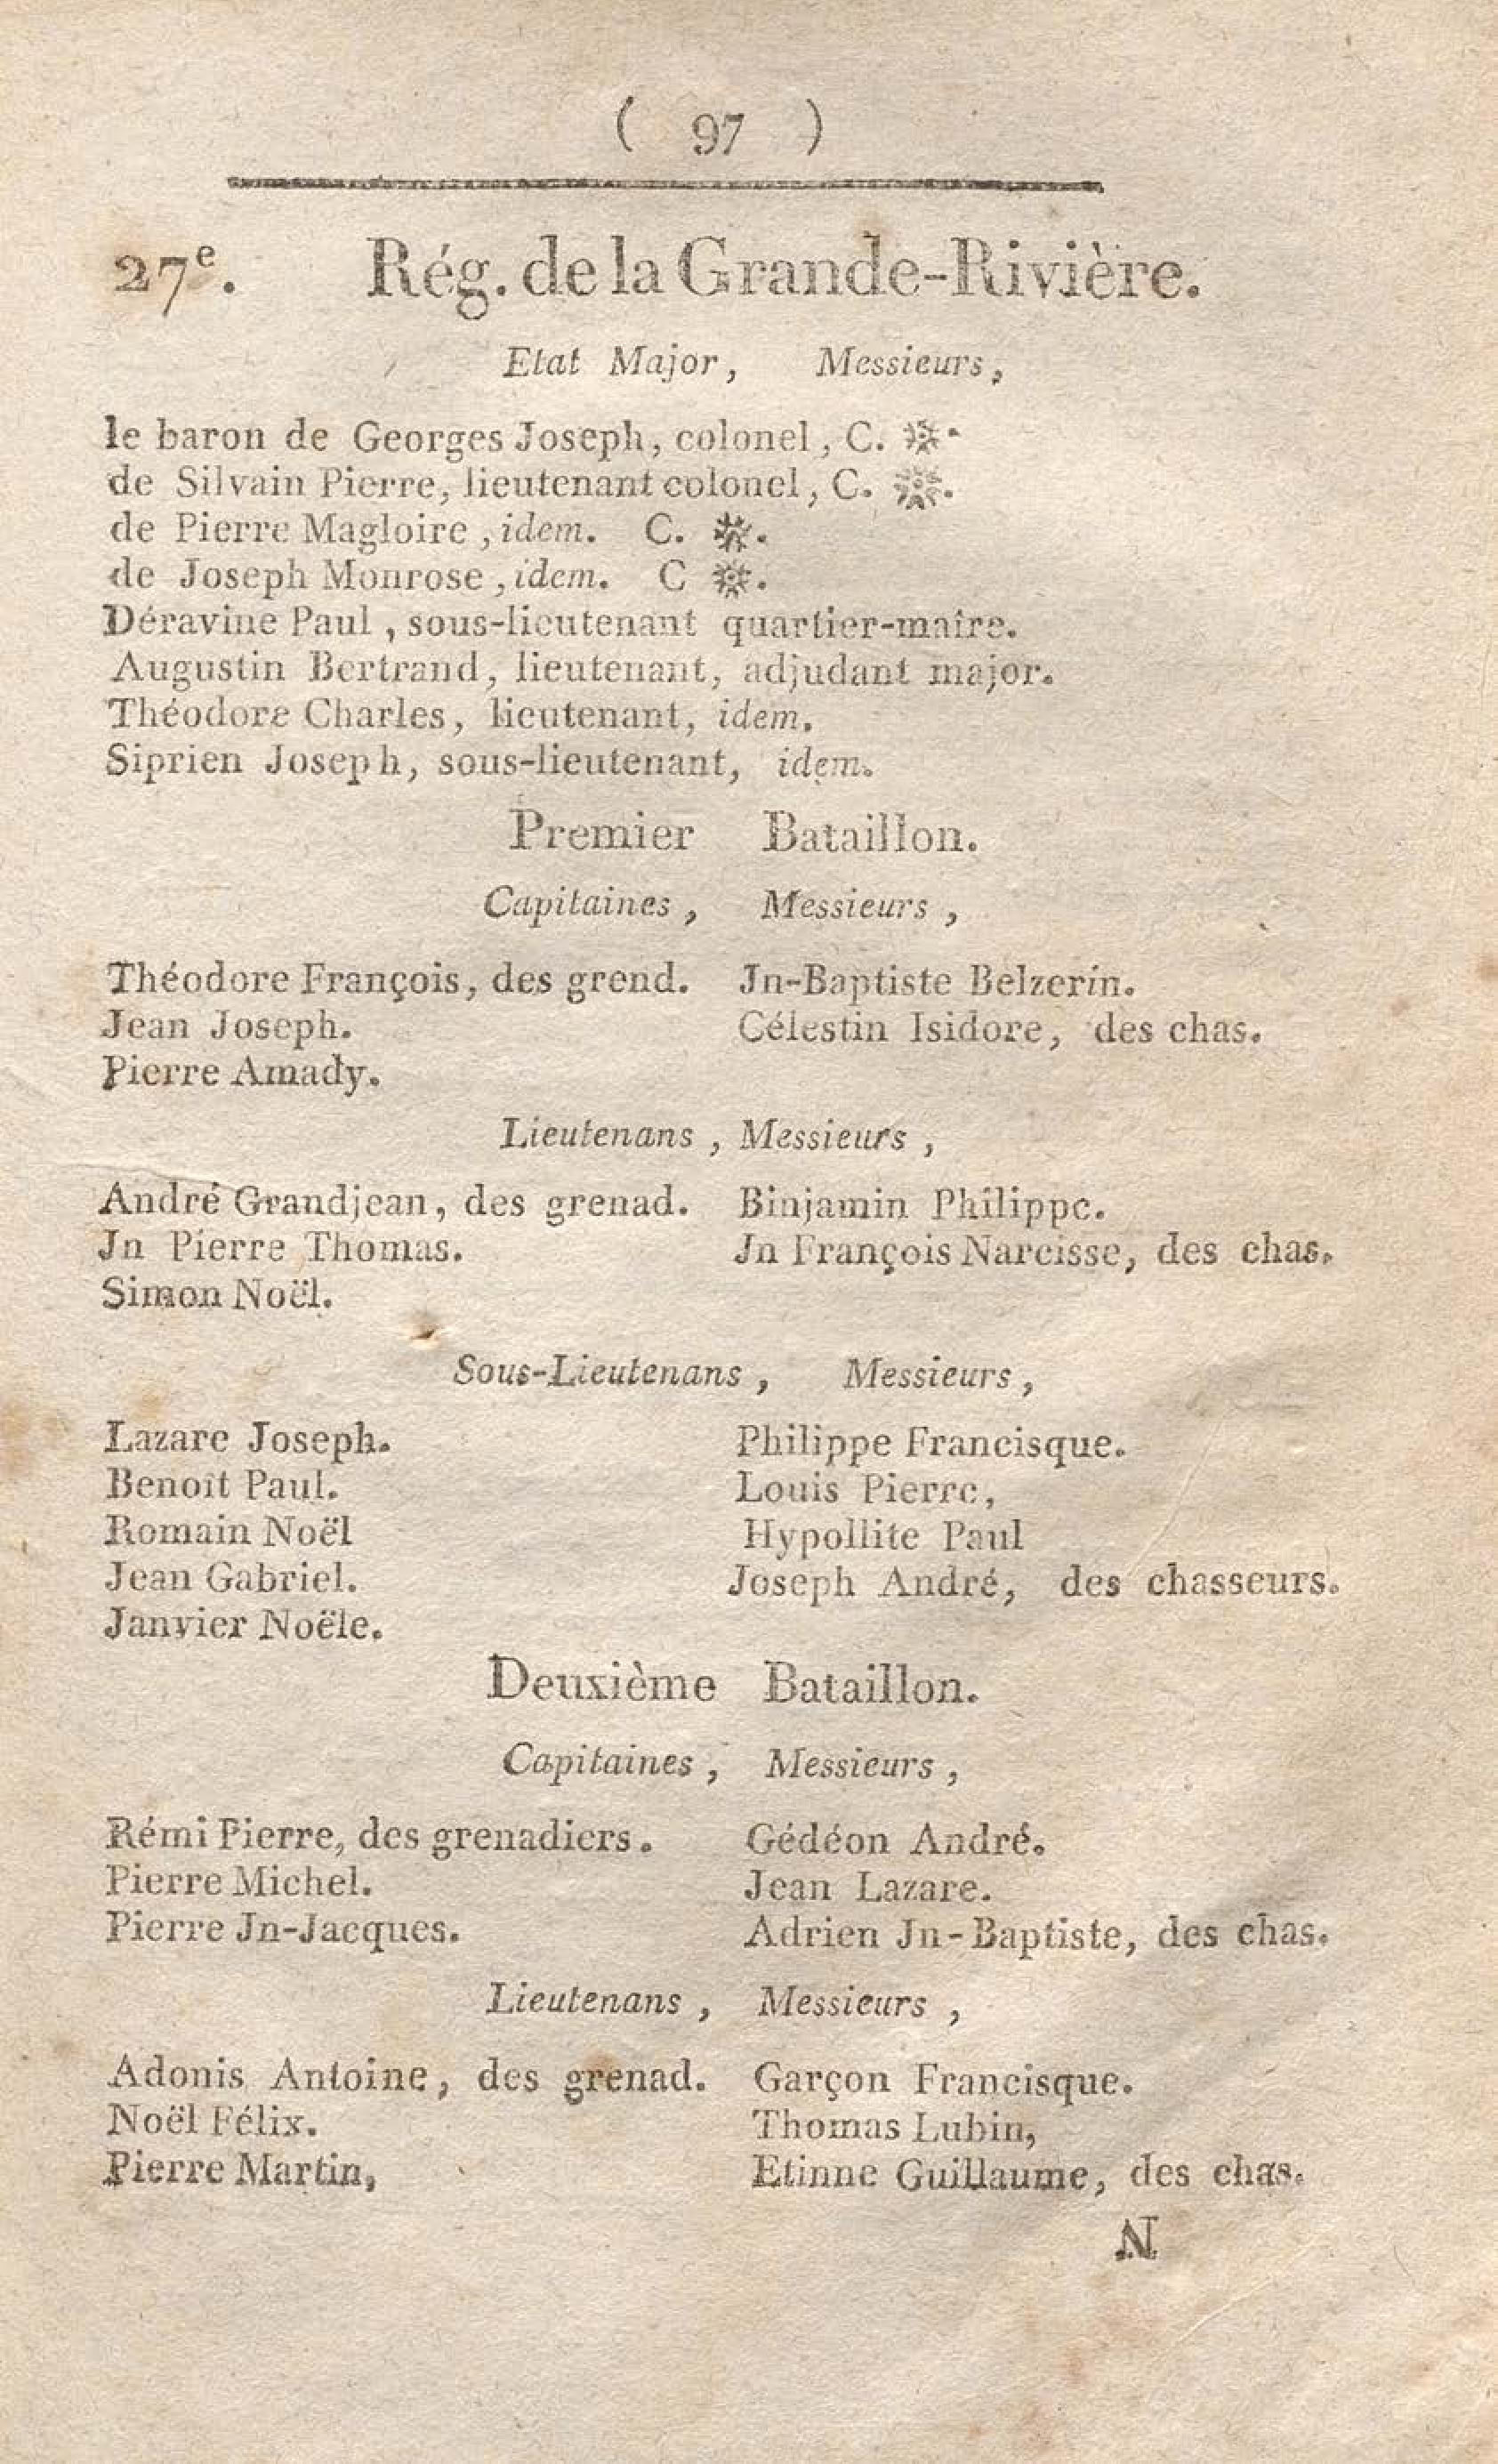 ( 97 )
27e. Rég. de la Grande-Rivière.
Etat Major, Messieurs,
le baron de Georges Joseph, colonel, C. ※.
de Silvain Pierre, lieutenant colonel, C. ※.
de Pierre Magloire, idem. C. ※.
de Joseph Monrose, idem. C ※.
Déravine Paul, sous-lieutenant quartier-maître.
Augustin Bertrand, lieutenant, adjudant major.
Théodore Charles, lieutenant, idem.
Siprien Joseph, sous-lieutenant, idem.
Premier Bataillon.
Capitaines, Messieurs,
Théodore François, des grend. Jn-Baptiste Belzerin.
Jean Joseph. Célestin Isidore, des chas.
Pierre Amady.
Lieutenans, Messieurs,
André Grandjean, des grenad. Binjamin Philippe.
Jn Pierre Thomas. Jn François Narcisse, des chas.
Simon Noël.
Sous-Lieutenans, Messieurs,
Lazare Joseph. Philippe Francisque.
Benoît Paul. Louis Pierre,
Romain Noël Hypollite Paul
Jean Gabriel. Joseph André, des chasseurs.
Janvier Noële.
Deuxième Bataillon.
Capitaines, Messieurs,
Rémi Pierre, des grenadiers. Gédéon André.
Pierre Michel. Jean Lazare.
Pierre Jn-Jacques. Adrien Jn-Baptiste, des chas.
Lieutenans, Messieurs,
Adonis Antoine, des grenad. Garçon Francisque.
Noël Félix. Thomas Lubin,
Pierre Martin, Etinne Guillaume, des chas.
N